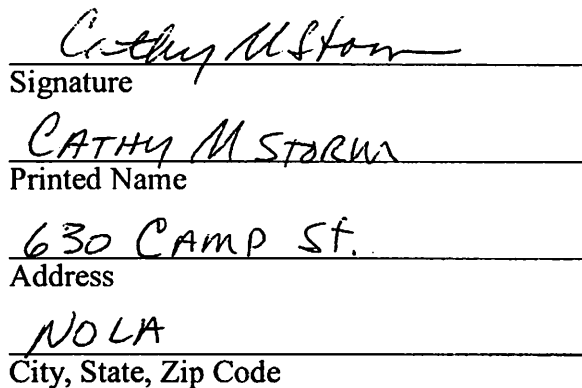 Cathy M Storm
Signature
CATHY M STORM
Printed Name
630 CAMP St.
Address
NOLA
City, State, Zip Code